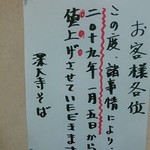 お客様各位
この度、諸事情により
二〇十九年一月五日から
値上げさせていただきます
深大寺そば